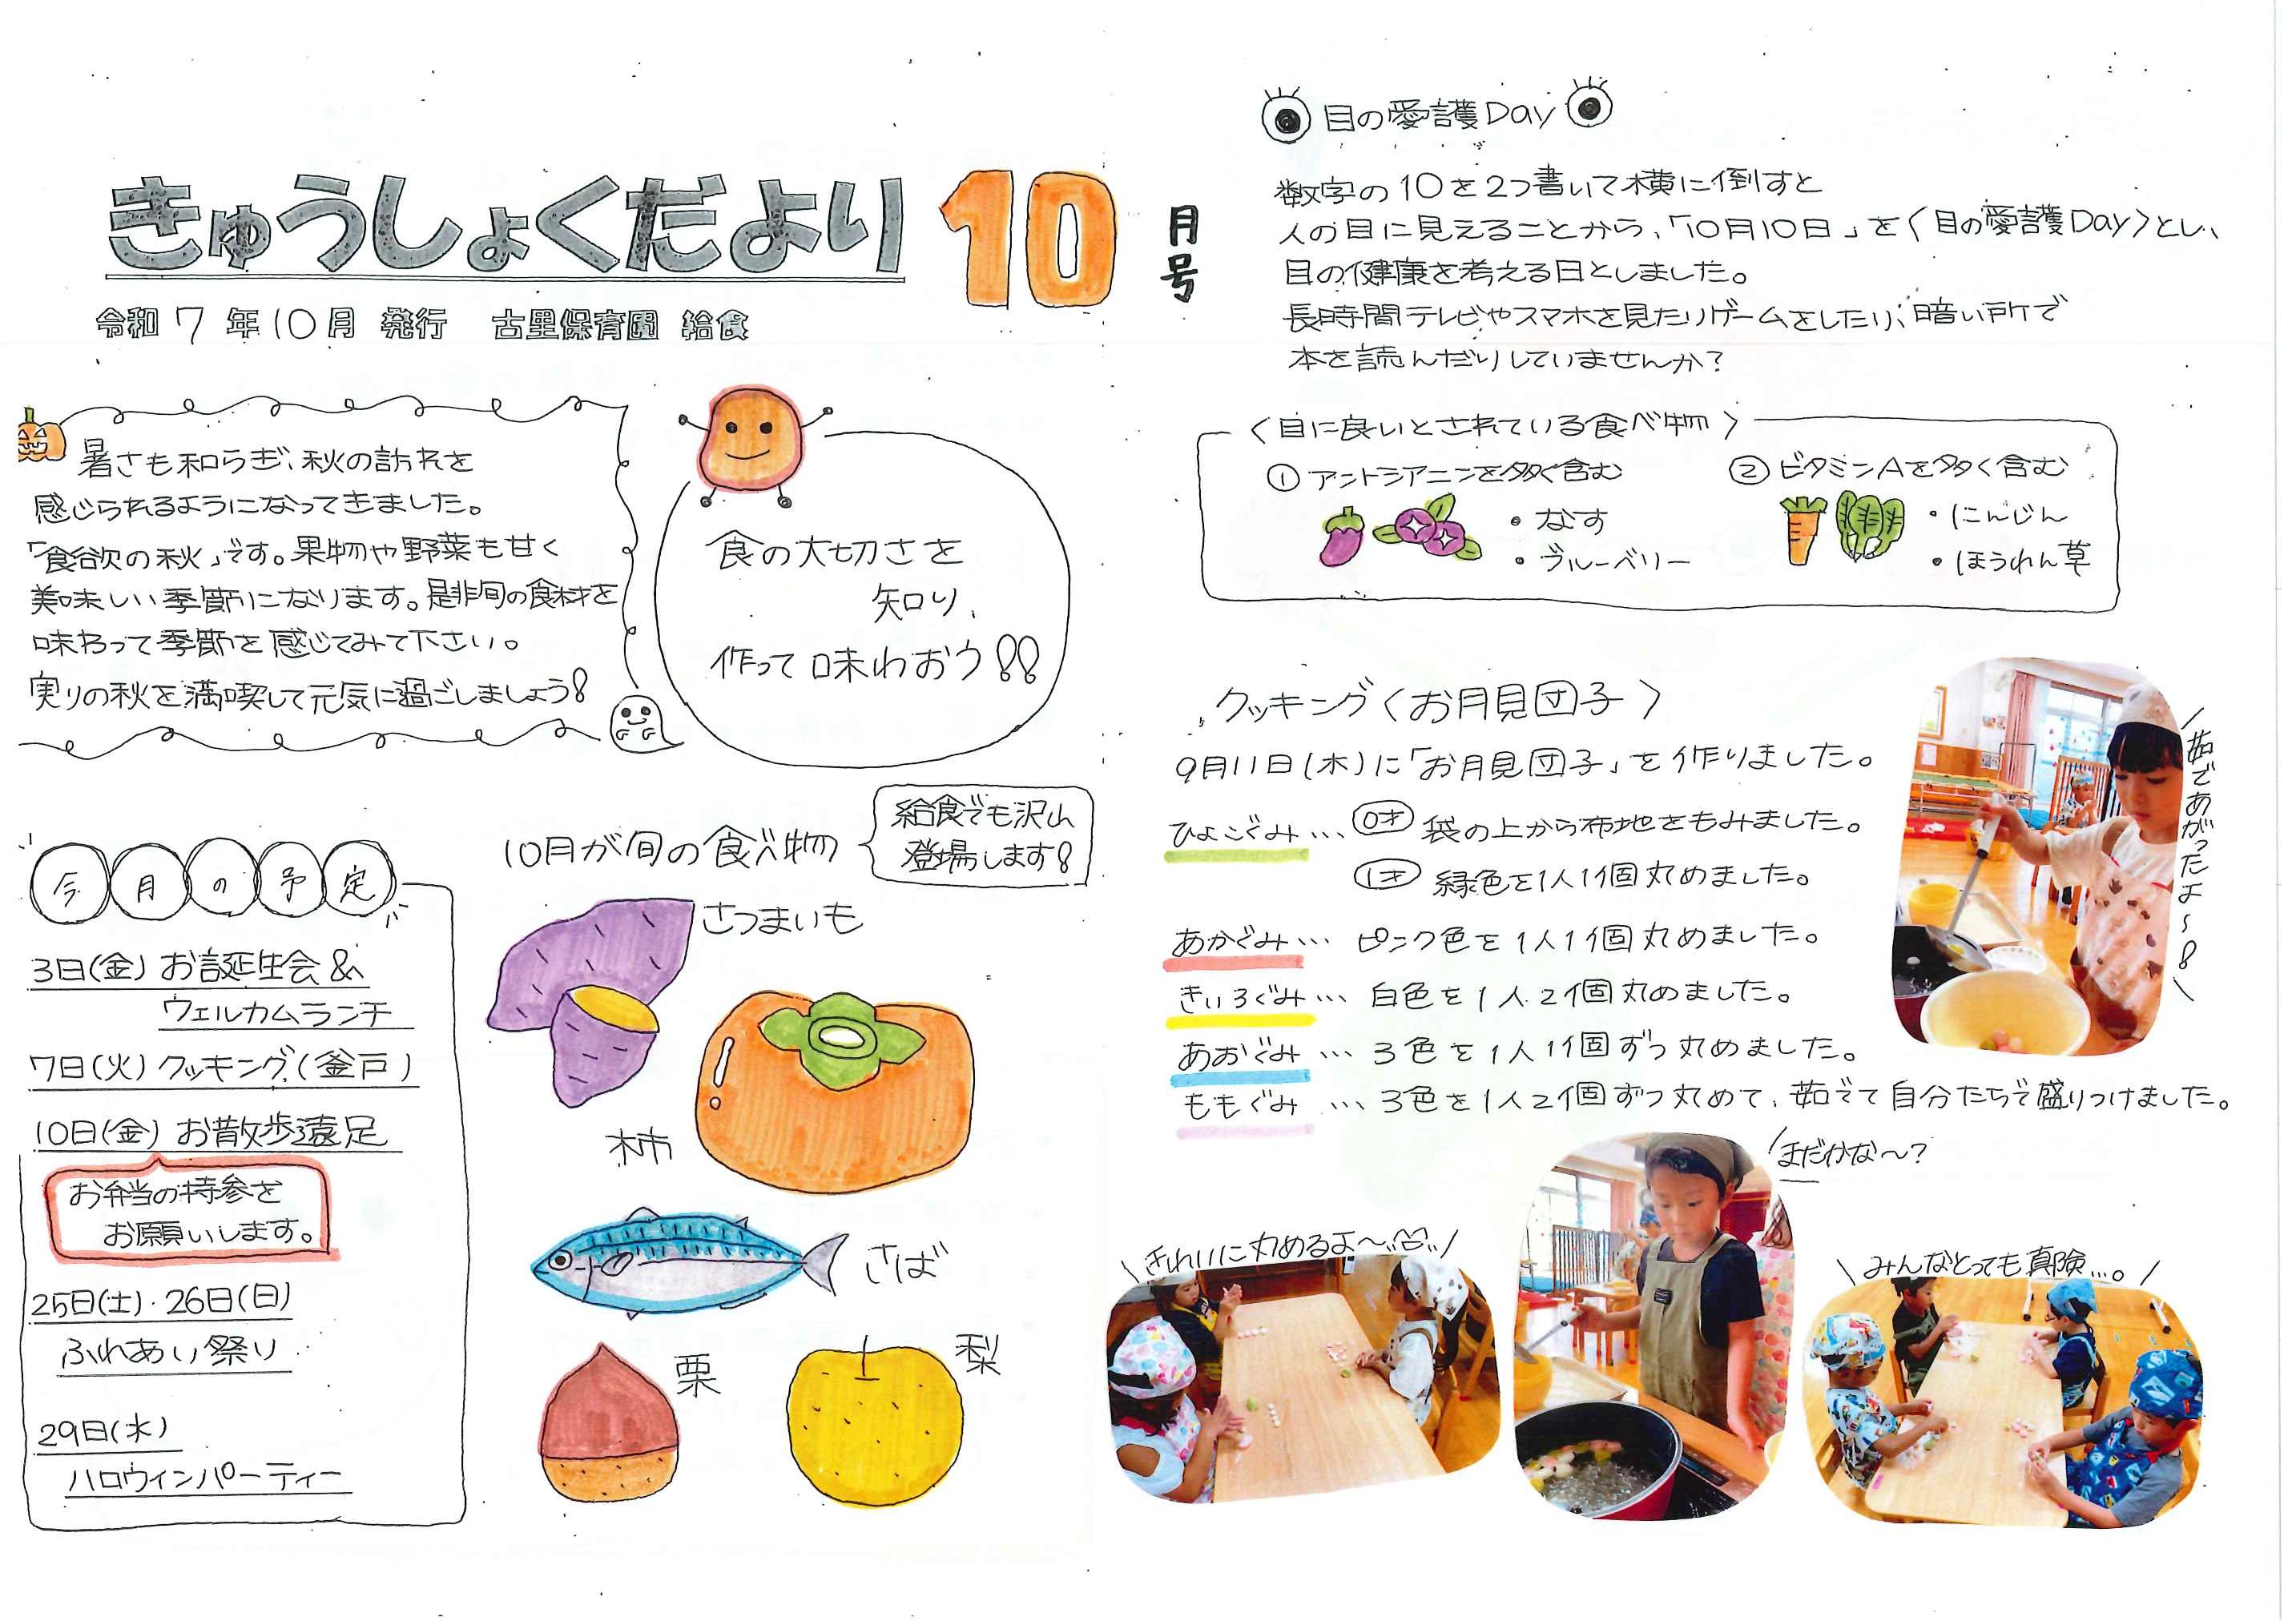 きゅうしょくだより 10月号
令和 7 年 10 月 発行 古里保育園 給食
暑さも和らぎ、秋の訪れを
感じられるようになってきました。
「食欲の秋」です。果物や野菜も甘く
美味しい季節になります。是非旬の食材を
味わって季節を感じてみて下さい。
実りの秋を満喫して元気に過ごしましょう!
食の大切さを
知り、
作って味わおう!!
今月の予定
3日(金) お誕生会&
ウェルカムランチ
7日(火) クッキング(釜戸)
10日(金) お散歩遠足
お弁当の持参を
お願いします。
25日(土)・26日(日)
ふれあい祭り
29日(水)
ハロウィンパーティー
10月が旬の食べ物
給食でも沢山
登場します!
さつまいも
柿
さば
栗
梨
目の愛護Day
数字の10を2つ書いて横に倒すと
人の目に見えることから、「10月10日」を〈目の愛護Day〉とし、
目の健康を考える日としました。
長時間テレビやスマホを見たりゲームをしたり、暗い所で
本を読んだりしていませんか?
〈目に良いとされている食べ物〉
① アントシアニンを多く含む
・なす
・ブルーベリー
② ビタミンAを多く含む
・にんじん
・ほうれん草
クッキング〈お月見団子〉
9月11日(木)に「お月見団子」を作りました。
ひよこぐみ… 0才 袋の上から布地をもみました。
1才 緑色を1人1個丸めました。
あかぐみ… ピンク色を1人1個丸めました。
きいろぐみ… 白色を1人2個丸めました。
あおぐみ… 3色を1人1個ずつ丸めました。
ももぐみ… 3色を1人2個ずつ丸めて、茹でて自分たちで盛りつけました。
茹であがったよ~!
まだかな~?
きれいに丸めるよ~
みんなとっても真険…。